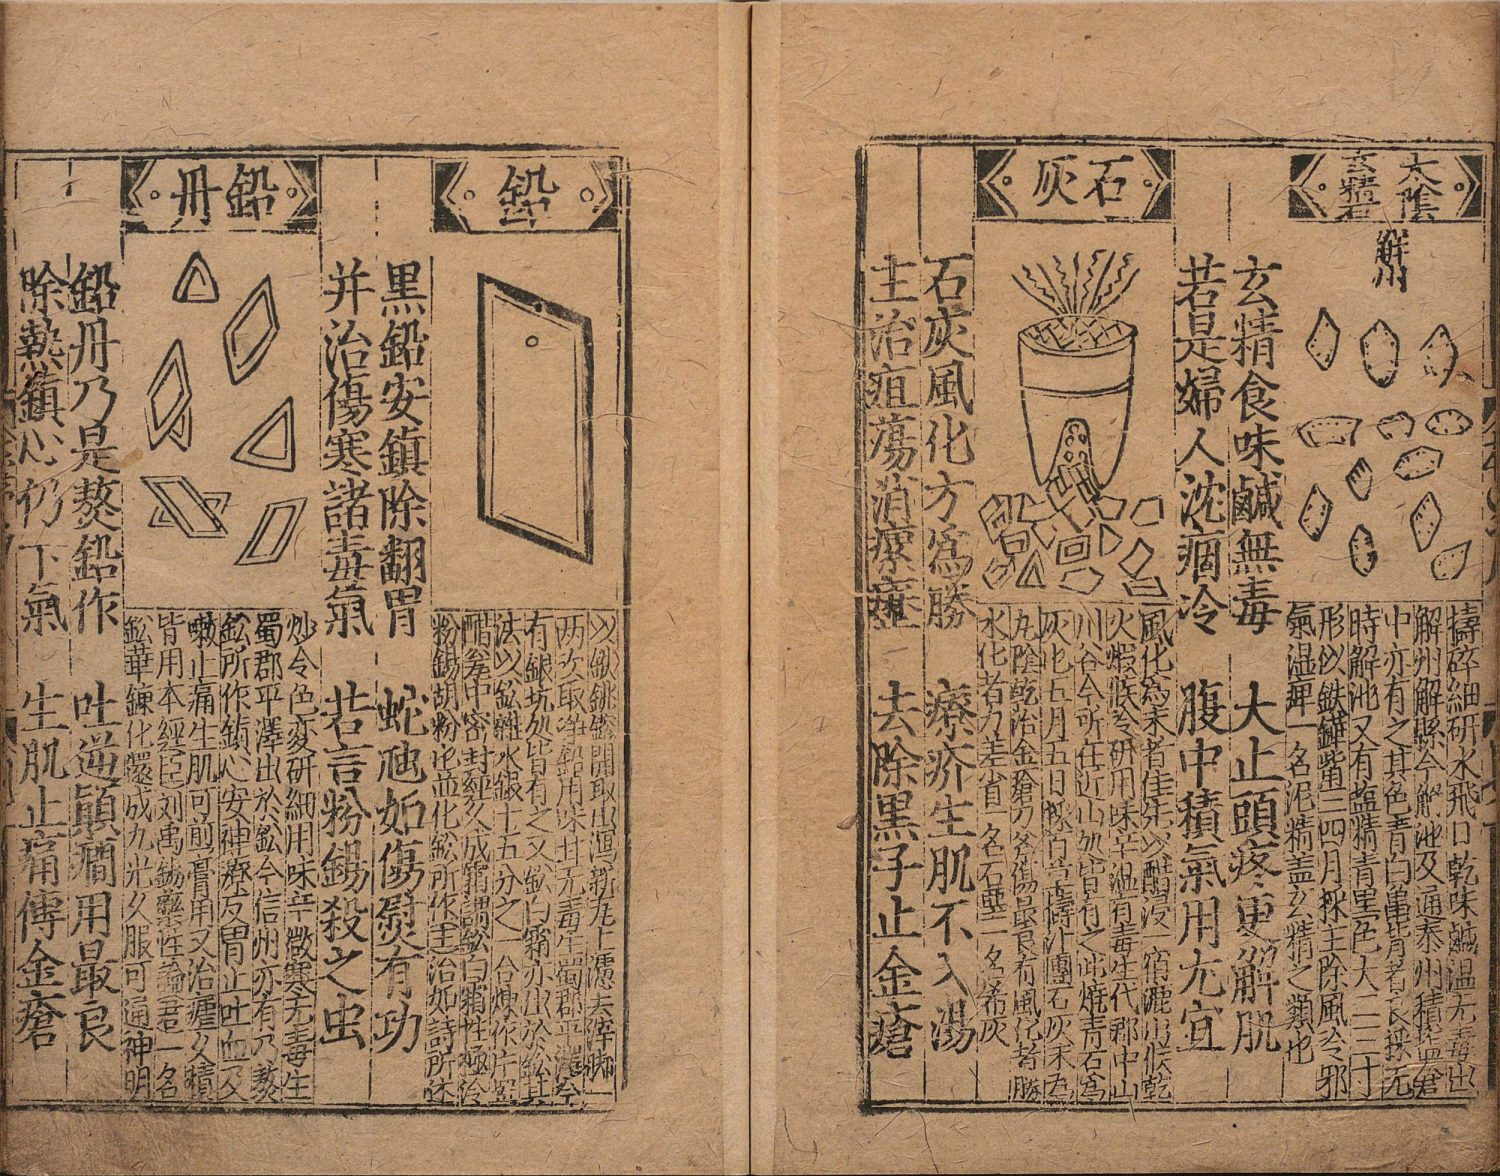 太陰
玄精石
解州
擣碎細研水飛口乾味鹹温无毒出
解州解縣今解池及通泰州積塩倉
中亦有之其色青白龜背者良採无
時解池又有塩精青黒色大三二寸
形似鉄鏵觜三四月採主除風冷邪
氣湿痺一名泥精盖玄精之類也
玄精食味鹹無毒 大止頭疼更解肌
若是婦人沈痼冷 腹中積氣用尤宜
石灰
風化為末者佳先以醋浸一宿漉出候乾
火煆候冷研用味辛温有毒生代郡中山
川谷今所在近山处皆有之此燒青石為
灰也五月五日採 擣汁團石灰末為
九陰乾治金瘡刀斧傷最良有風化者勝
水化者力差省一名石堊一名希灰
石灰風化方為勝 療疥生肌不入湯
主治疽瘍消瘰癧 去除黒子止金瘡
鈆
两次取淨鈆用味甘无毒生蜀郡平澤今
有銀坑处皆有之又鈆白霜亦出於鈆其
法以鈆雜水銀十五分之一合煉作片置
醋瓮中密封経久成霜謂鈆白霜性極冷
粉錫胡粉也並化鈆所作主治如詩所述
黒鉛安鎮除翻胃 蛇虺如傷熨有功
并治傷寒諸毒氣 若言粉錫殺之虫
鉛丹
炒令色变研細用味辛微寒无毒生
蜀郡平澤出於鈆今信州亦有乃熬
鈆所作鎮心安神療反胃止吐血及
嗽止痛生肌可煎膏用又治瘧久積
皆用本經臣禹錫藥性論君一名
鈆華錬化還成九光久服可通神明
鉛丹乃是熬鉛作 吐逆顛癇用最良
除熱鎮心仍下氣 生肌止痛傅金瘡